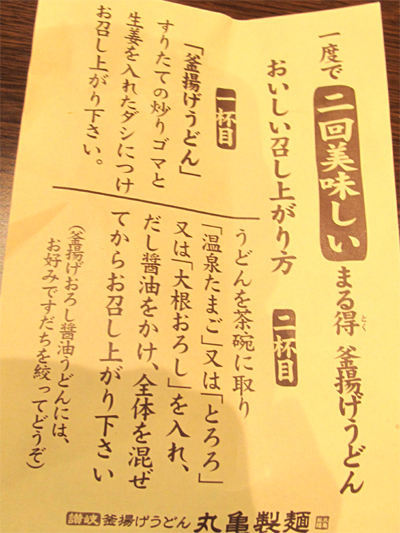 一度で二回美味しいまる得釜揚げうどん
とく
おいしい召し上がり方
一杯目
「釜揚げうどん」
すりたての炒りゴマと
生姜を入れたダシにつけ
お召し上がり下さい。
二杯目
うどんを茶碗に取り
「温泉たまご」又は「とろろ」
又は「大根おろし」を入れ、
だし醤油をかけ、全体を混ぜ
てからお召し上がり下さい
(釜揚げおろし醤油うどんには、
お好みですだちを絞ってどうぞ)
讃岐釜揚げうどん 丸亀製麺